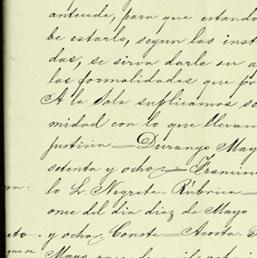 antecede, para que estando
be estarlo, segun las inst
das, se sirva darle su a
las formalidades que pr
A la Sala suplicamos se
midad con lo que llevam
justicia — Durango May
setenta y ocho — Francisc
lo L. Negrete – Rúbrica —
once del dia diez de Mayo
y ocho Conste — Acosta.
Mayo